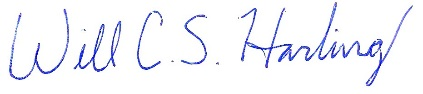 Will C. S. Harling